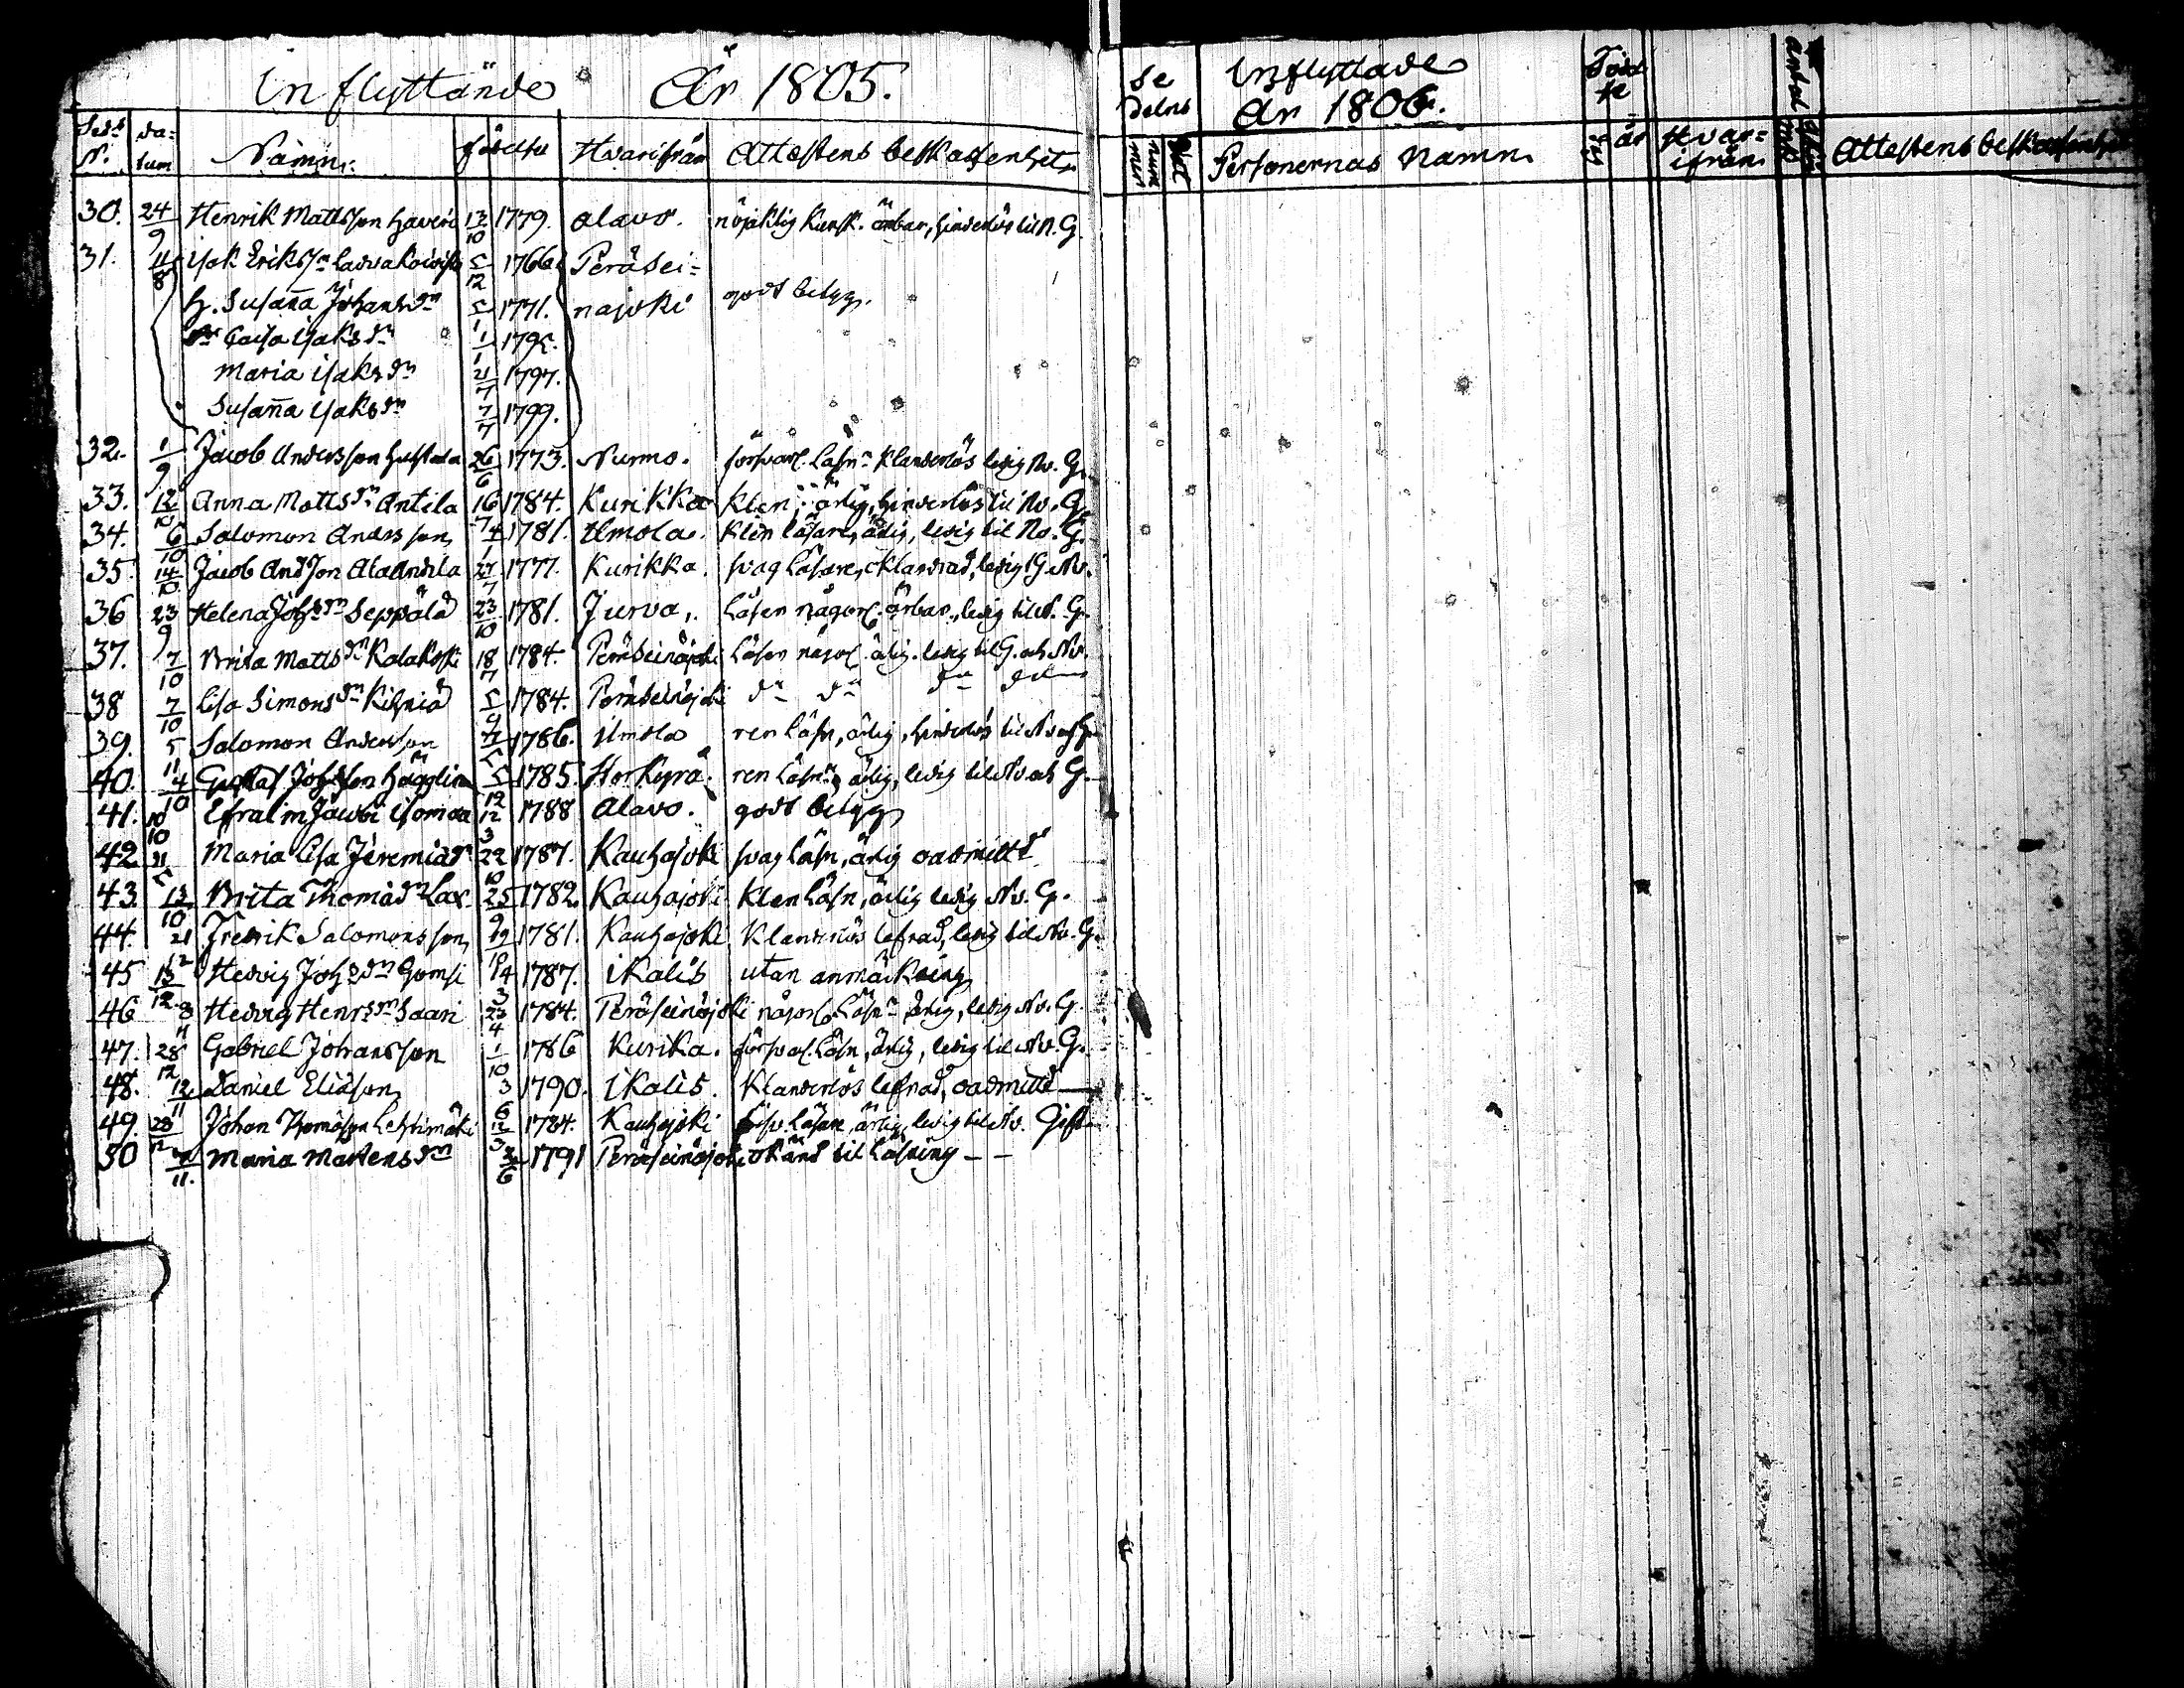 Inflyttände År 1805.
Seds N. da-tum Namn: födelse Hvarifrån Attestens beskaffenhet
30. 24/9 Henrik Mattsson Haveri 13/10 1779. Alavo. nöjaktig kunsk. ärbar, hinderlös til N. G.
31. 4/8 Isak Eriksson 5/12 1766 Peräsei-
H. Susaña Johansdn 5/1 1771. najoki godt betyg.
Caisa Isaksdn 1/1 1795.
Maria Isaksdn 21/7 1797.
Susaña Isaksdn 7/7 1799.
32. 1/9 Jacob Andersson 26/6 1773. Nurmo. försvarl. Läsn. klanderlös ledig Nv. G.
33. 12/10 Anna Mattsdn Antila 16/7 1784. Kurikka Klen, ärlig, hinderlös til Nv. G.
34. 6/10 Salomon Andersson 4/1 1781. Ilmola. Klen läsare, ärlig, ledig til Nv. G.
35. 14/10 Jacob Andsson Ala Andila 27/7 1777. Kurikka. svag Läsare, oklandrad, ledig G. Nv.
36 23/9 Helena Johsdn Seppälä 23/10 1781. Jurva,. Läser någorl. ärbar, ledig til N. G.
37. 7/10 Brita Mattsdn Kalakoski 18/7 1784. Peräseinäjoki Läser någorl. ärlig. ledig til G. och Nv.
38 7/10 Lisa Simonsdn Kihniä 5/9 1784. Peräseinäjoki dn dn dn dn
39. 5/11 Salomon Andersson 1786. Ilmola ren Läsn, ärlig, hinderlös til Nv och G
40. 4/10 Gustaf Johsson Hägglin 5/12 1785. Storkyrå. ren Läsn, ärlig, ledig til Nv och G.
41. 10/10 Efraim Jacobs Isomaa 12/3 1788 Alavo. godt betyg
42 21 Maria Lisa Jeremiadn 22/10 1787. Kauhajoki svag Läsn, ärlig oadmitt
43. 13/10 Brita Thomadn Lax 25/9 1782. Kauhajoki Klen Läsn, ärlig ledig Nv. G.
44. 21/12 Fredrik Salomonsson 19/10 1781. Kauhajoki Klanderlös lefnad, ledig til Nv. G.
45 15/12 Hedvig Johsdn Gumsi 14/3 1787. Ikalis utan anmärkning
46 8/11 Hedvig Henrsdn Saari 23/4 1784. Peräseinäjoki någorl. Läsn ärlig, ledig Nv. G.
47. 28/12 Gabriel Johansson 1/10 1786 Kurika. försvarl. Läsn, ärlig, ledig til Nv. G.
48. 12/11 Daniel Eliasson 3/6 1790. Ikalis. Klanderlös lefnad, oadmitt
49. 28/12 Johan Thomasson Lehtimäki 12/3 1784. Kauhajoki försv. Läsare, ärlig, ledig til Nv. Gift
50 /11. Maria Martensdn /6 1791 Peräseinäjoki okänd til Läsning - -
Sedelns nummer Inflyttade År 1806. Födde
Personernas Namn. dag år Hvar-ifrån antal Attestens beskaffenhet